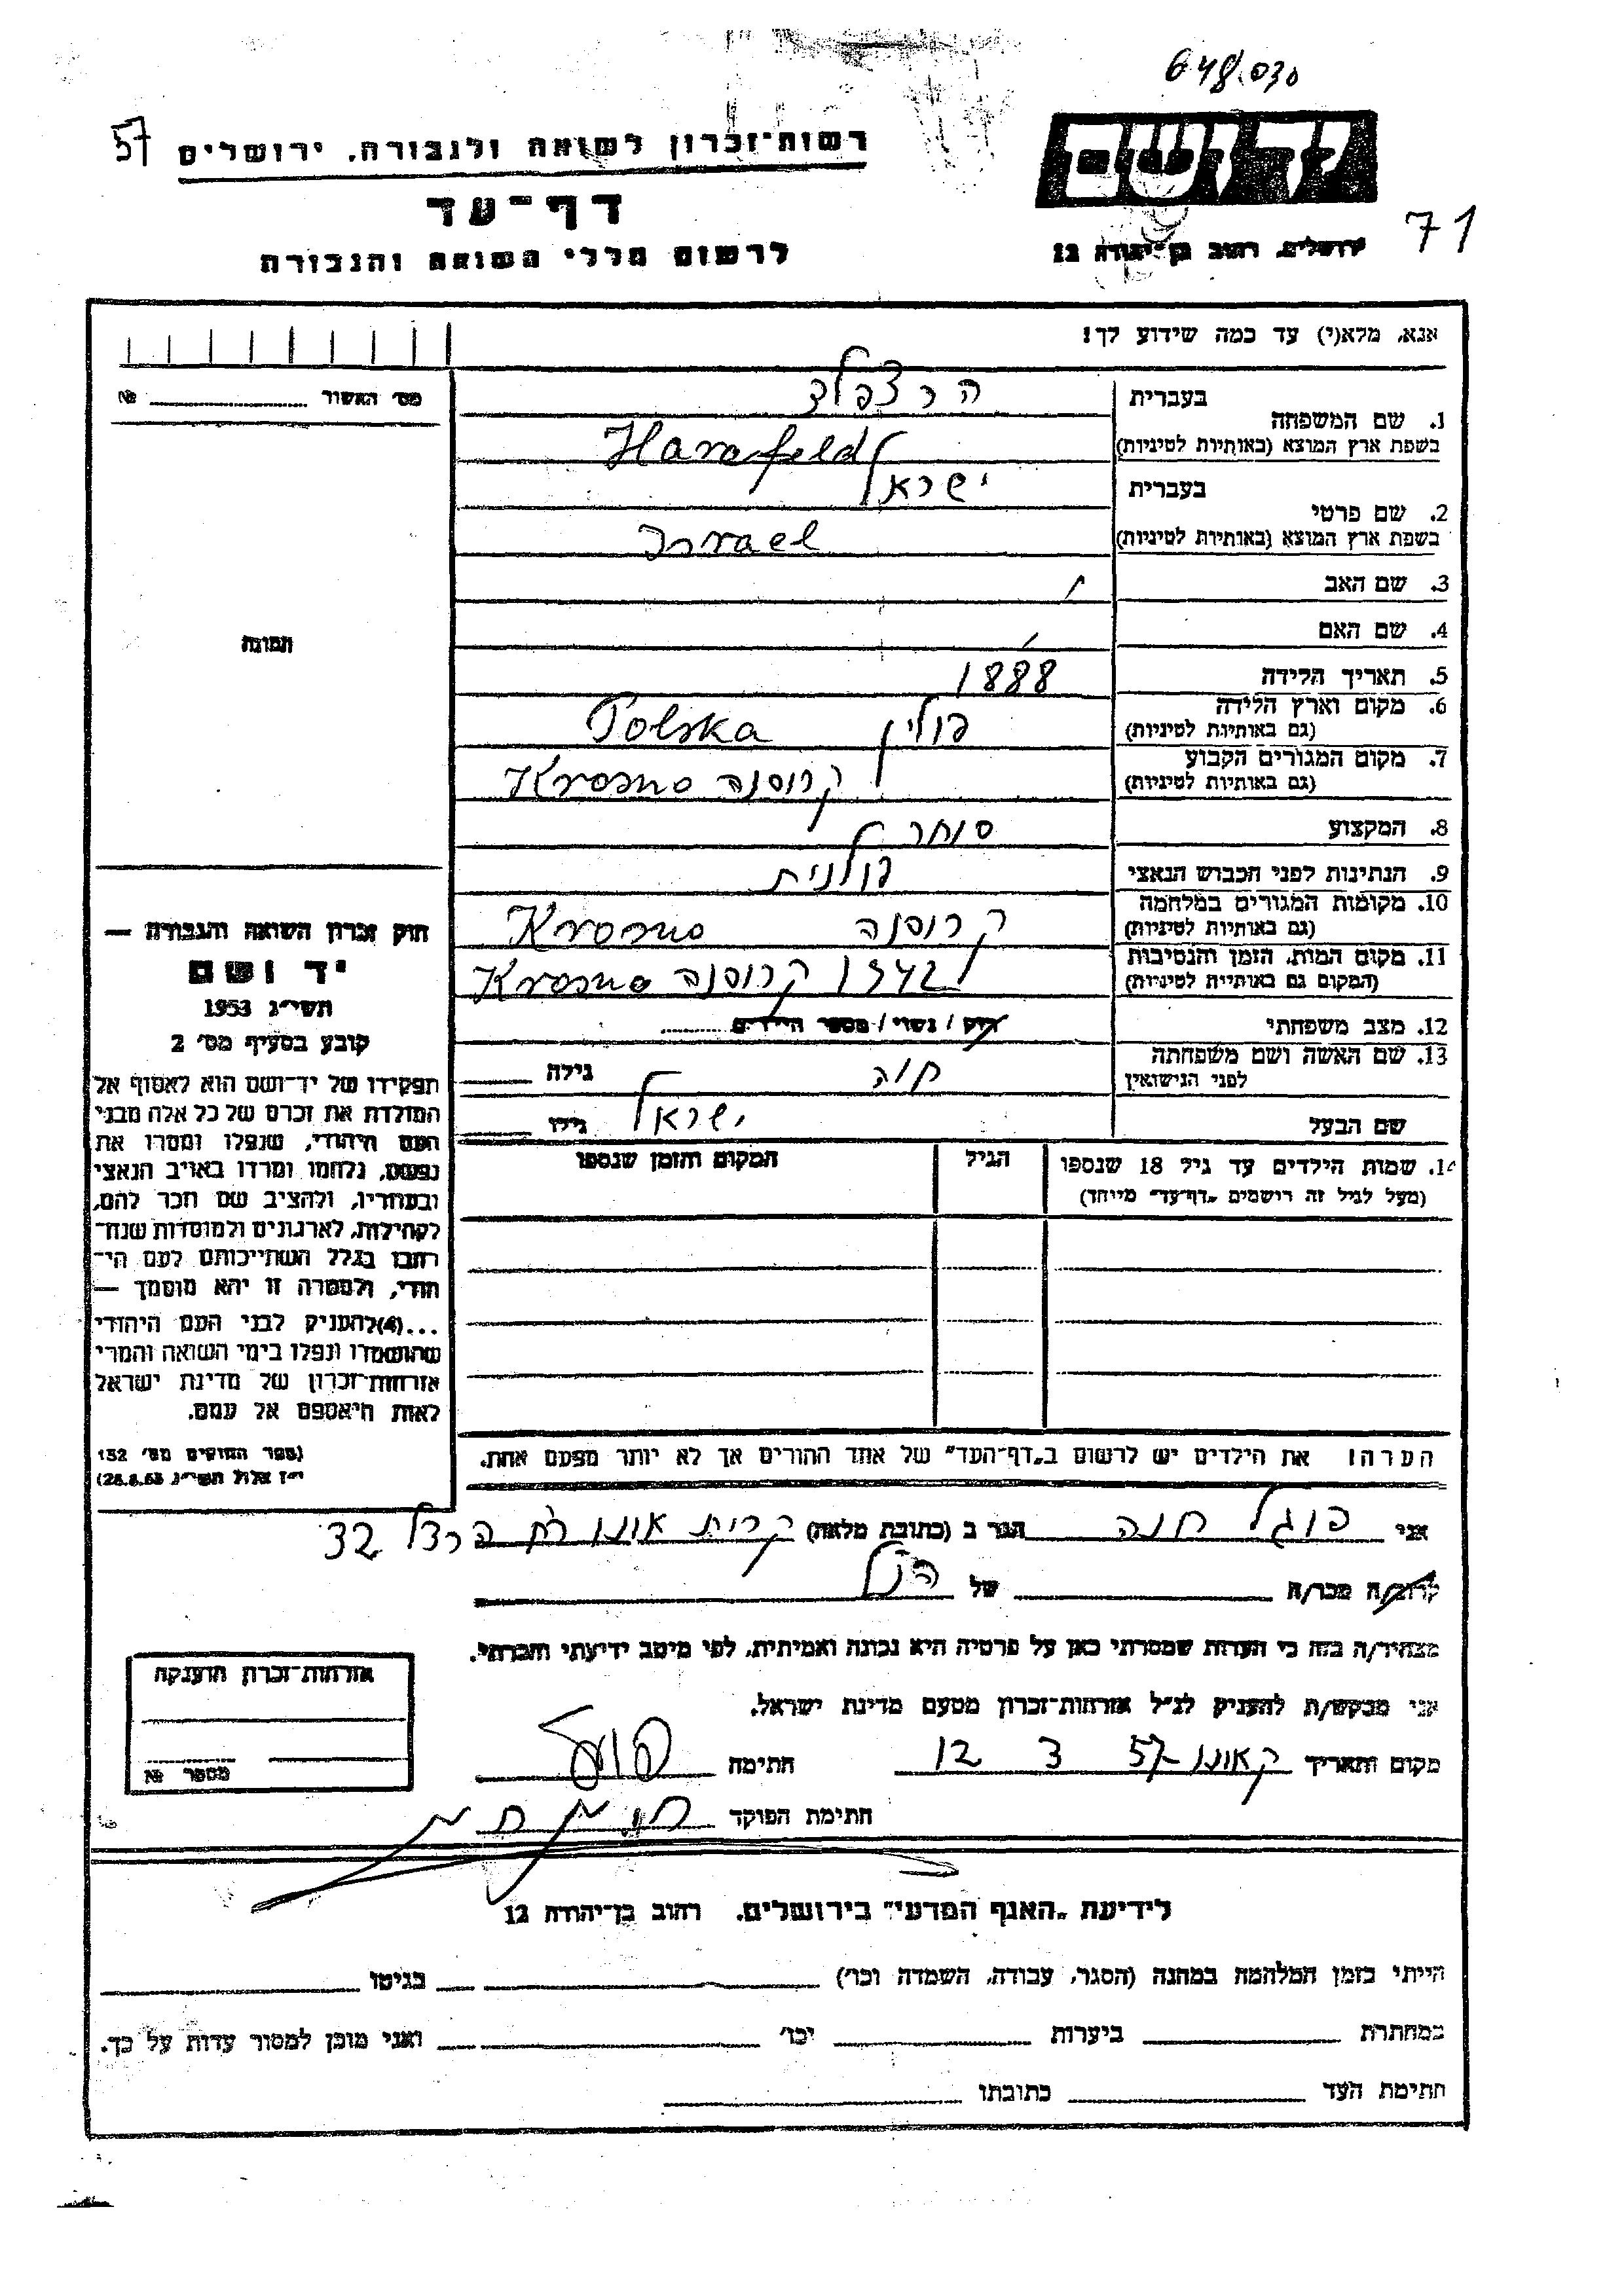 648.030
57
רשות־זכרון לשואה ולגבורה, ירושלים
יד ושם
דף־עד
לרשום חללי השואה והגבורה
ירושלים, רחוב בן־יהודה 12
71
אנא, מלא(י) עד כמה שידוע לך!
מס' האשור № 
1. שם המשפחה בעברית הרצפלד
בשפת ארץ המוצא (באותיות לטיניות) Harcfeld
2. שם פרטי בעברית ישראל
בשפת ארץ המוצא (באותיות לטיניות) Israel
3. שם האב
4. שם האם
תמונה
5. תאריך הלידה 1888
6. מקום וארץ הלידה (גם באותיות לטיניות) פולין Polska
7. מקום המגורים הקבוע (גם באותיות לטיניות) קרוסנה Krosno
8. המקצוע סוחר
9. הנתינות לפני הכבוש הנאצי פולנית
10. מקומות המגורים במלחמה (גם באותיות לטיניות) קרוסנה Krosno
11. מקום המות, הזמן והנסיבות (המקום גם באותיות לטיניות) 1942 קרוסנה Krosno
12. מצב משפחתי רוק / נשוי / מספר הילדים
13. שם האשה ושם משפחתה לפני הנישואין חוה גילה
שם הבעל ישראל גילו
14. שמות הילדים עד גיל 18 שנספו הגיל המקום והזמן שנספו
(מעל לגיל זה רושמים „דף־עד" מייחד)
חוק זכרון השואה והגבורה —
יד ושם
תשי"ג 1953
קובע בסעיף מס' 2
תפקידו של יד־ושם הוא לאסוף אל
המולדת את זכרם של כל אלה מבני
העם היהודי, שנפלו ומסרו את
נפשם, נלחמו ומרדו באויב הנאצי
ובעוזריו, ולהציב שם וזכר להם,
לקהילות, לארגונים ולמוסדות שנח־
רבו בגלל השתייכותם לעם הי־
הודי, ולמטרה זו יהא מוסמך —
...(4)להעניק לבני העם היהודי
שהושמדו ונפלו בימי השואה והמרי
אזרחות־זכרון של מדינת ישראל
לאות היאספם אל עמם.
(ספר החוקים מס' 132
י"ז אלול תשי"ג 28.8.53)
הערה! את הילדים יש לרשום ב„דף־העד" של אחד ההורים אך לא יותר מפעם אחת.
אני פוגל חנה הגר ב (כתובת מלאה) קרית אונו רח הרצל 32
קרוב/ה מכר/ה של הנ"ל
מצהיר/ה בזה כי העדות שמסרתי כאן על פרטיה היא נכונה ואמיתית, לפי מיטב ידיעתי והכרתי.
אני מבקש/ת להעניק לנ"ל אזרחות־זכרון מטעם מדינת ישראל.
מקום ותאריך ק אונו 57 3 12 חתימה
חתימת הפוקד
אזרחות־זכרון הוענקה
מספר №
לידיעת „האגף המדעי" בירושלים, רחוב בן־יהודה 12
הייתי בזמן המלחמה במחנה (הסגר, עבודה, השמדה וכו') בגיטו
במחתרת ביערות וכו' ואני מוכן למסור עדות על כך.
חתימת העד כתובתו